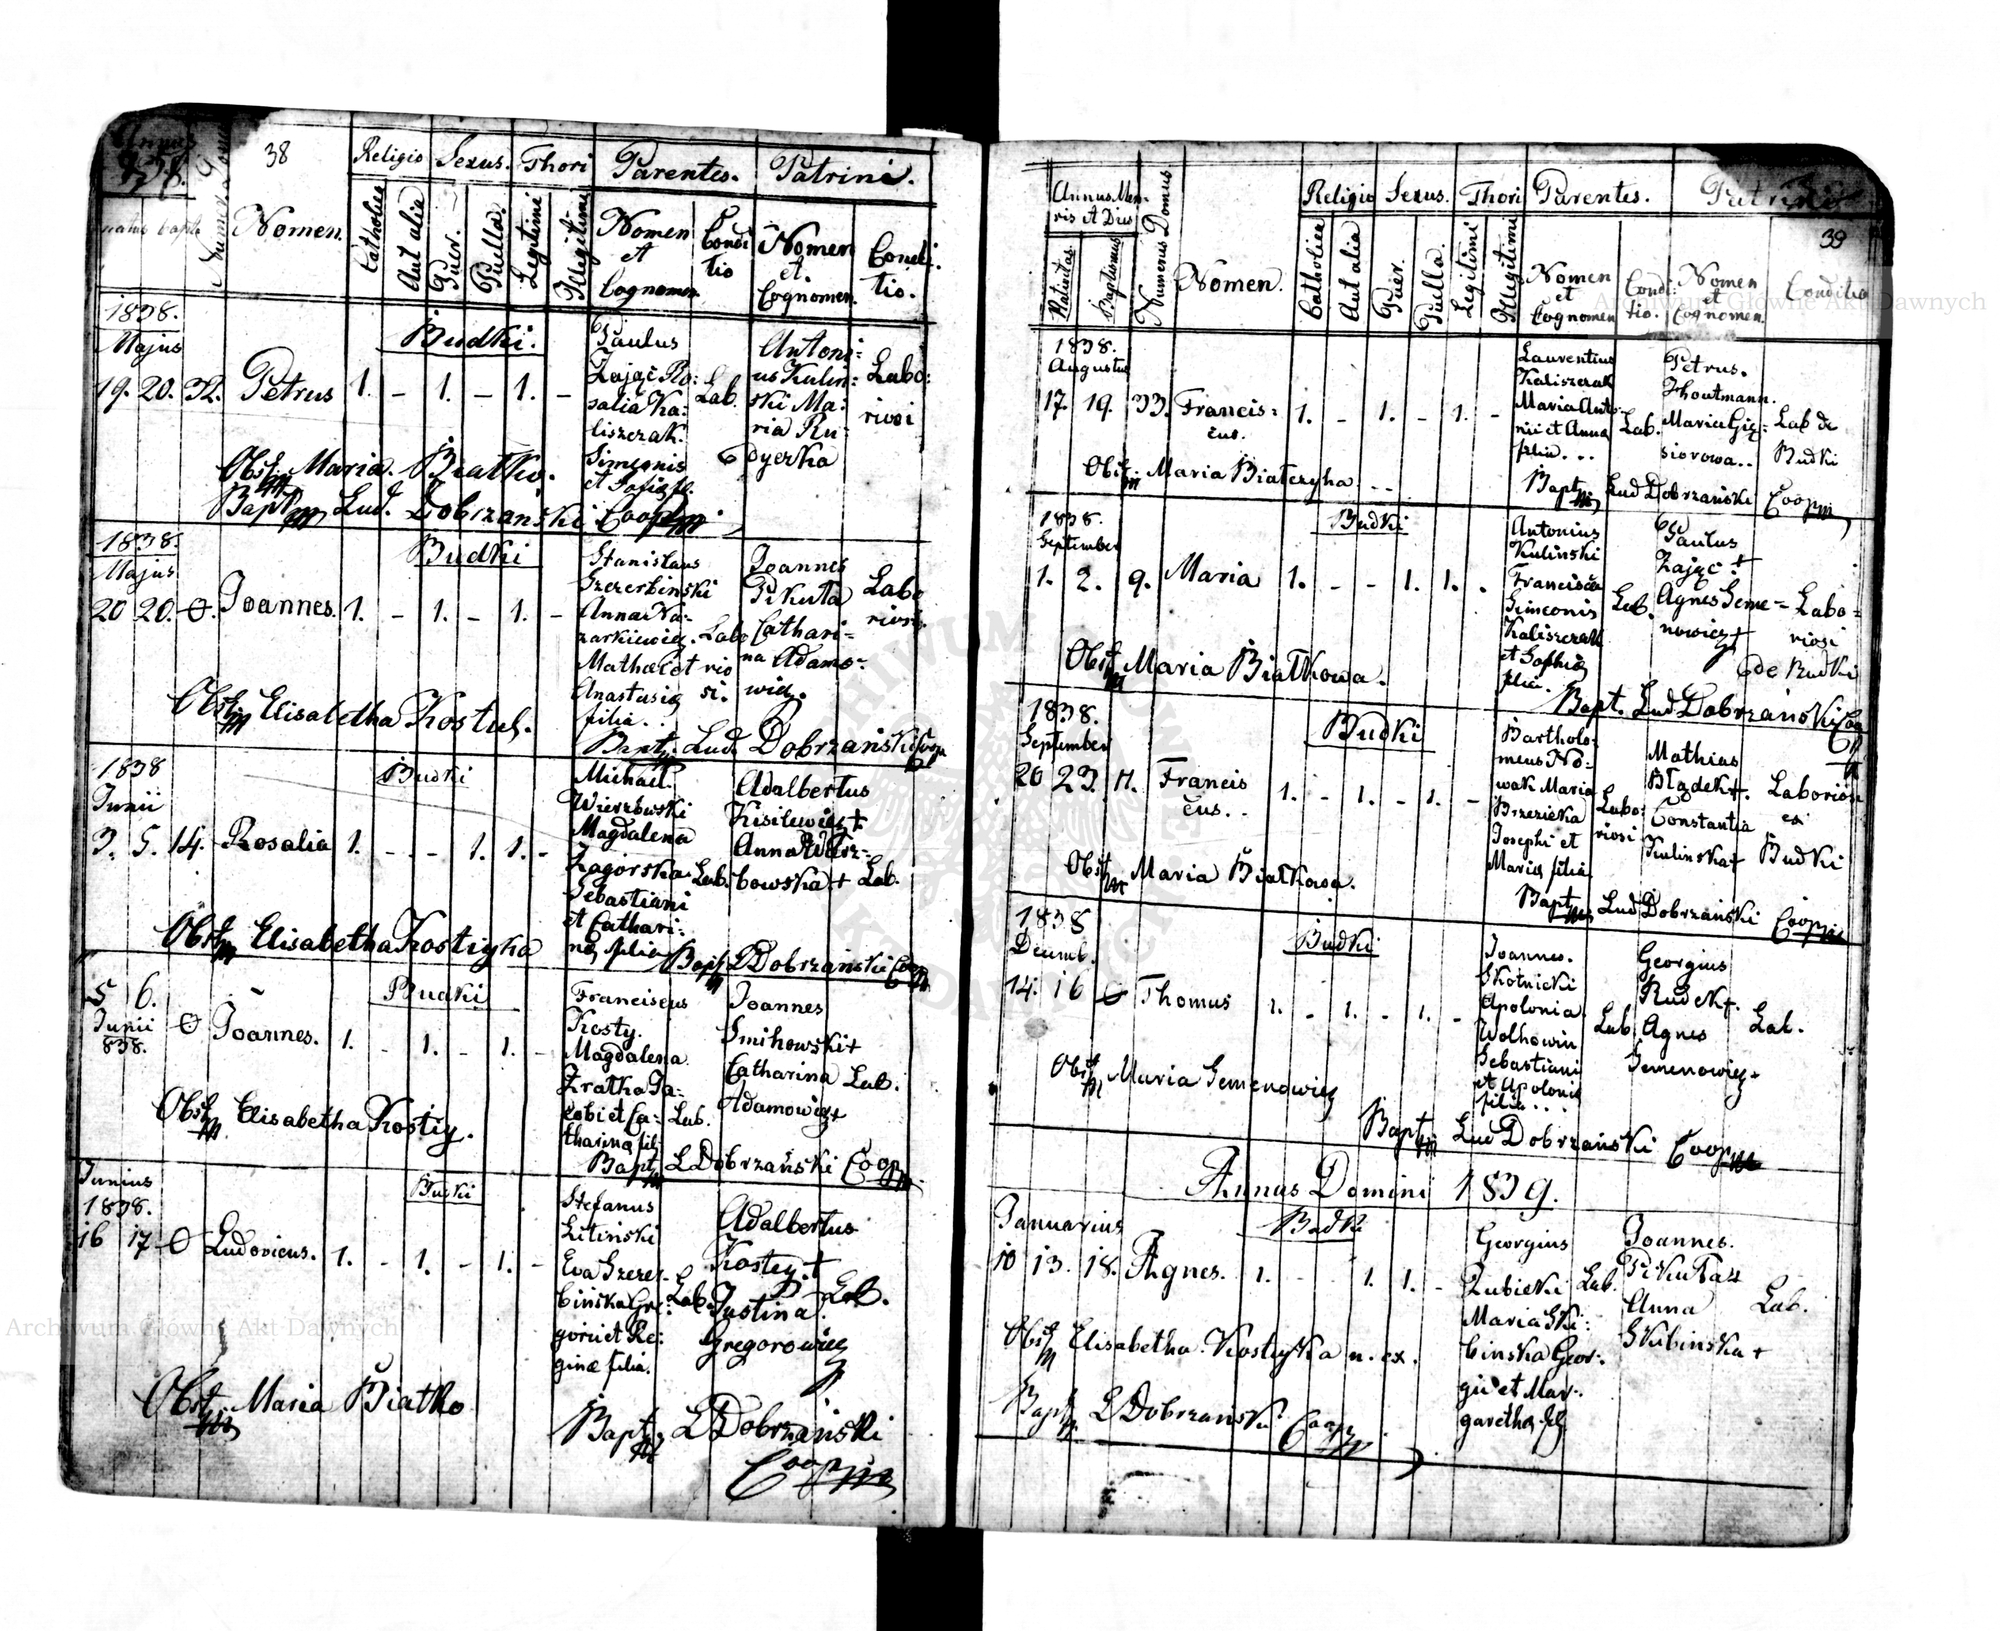 Annus
1838.
38
Numerus Domus
Religio Sexus. Thori Parentes. Patrini.
natus bapt.
Nomen.
Catholica
Aut alia
Puer.
Puella.
Legitimi
Illegitimi
Nomen
et
Cognomen.
Condi
tio
Nomen
et.
Cognomen.
Condi.
tio.
1838.
Majus
Budki.
19. 20. 32. Petrus 1. - 1. - 1. -
Paulus
Zając Ro:
salia Ka:
liszczak.
Simeonis
et Sofia f.
Lab.
Antoni=
us Kulin=
ski Ma:
ria Ru=
dyezka
Labo:
riosi
Obst. Maria Białko.
Bapt. Lud. Dobrzański Coop.
1838.
Majus
Budki
20 20. O. Joannes. 1. - 1. - 1. -
Stanislaus
Szczerbinski
Anna Na=
zarkiewicz.
Mathæi et
Anastasia
filia..
Labo
rio
si.
Joannes
Pikuta
Cathari=
na Adamo=
wicz.
Labo
riosi.
Obst. Elisabetha Kostuh.
Bapt. Lud. Dobrzański Coop.
1838
Junii
Budki
3. 5. 14. Rosalia 1. - - 1. 1. -
Michael.
Wierzbowski
Magdalena
Zagorska
Sebastiani
et Cathari=
na filia
Lab.
Adalbertus
Kisilewicz +
Anna Wierz=
bowska +
Lab.
Obst. Elisabetha Kostiyka
Bapt. L Dobrzański Coop.
5 6.
Junii
838.
Budki
O Joannes. 1. - 1. - 1. -
Franciscus
Kosty.
Magdalena
Zratka Ja=
cobi et Ca=
tharina fil.
Lub.
Joannes
Smihowski +
Catharina
Adamowicz +
Lab.
Obst. Elisabetha Kostiy.
Bapt. L Dobrzański Coop.
Junius
1838.
Budki
16 17 O Ludovicus. 1. - 1. - 1. -
Stefanus
Litinski
Eva Szczer=
binska Gre:
gorii et Re:
ginæ filia.
Lab.
Adalbertus
Kostey. +
Justina.
Gregorowicz
Lab.
Obst. Maria Białko
Bapt. L Dobrzański
Coop.
Annus Men-
sis et Dies
Nativitas
Baptismus
Numerus Domus
Nomen.
Religio Sexus. Thori Parentes. Patrini
39
Catholica
Aut alia
Puer.
Puella.
Legitimi
Illegitimi
Nomen
et
Cognomen
Condi:
tio.
Nomen
et
Cognomen.
Conditio
1838.
Augustus
17. 19. 33. Francis=
cus. 1. - 1. - 1. -
Laurentius
Kaliszczak
Maria Anto-
nii et Anna
filia...
Lab.
Petrus.
Thoutmann.
Maria Gię=
siorowa..
Lab de
Budki
Obst. Maria Białczyha..
Bapt. Lud Dobrzański Coop
1838.
September
Budki
1. 2. 9. Maria 1. - - 1. 1. .
Antonius
Kulinski
Francisca
Simeonis
Kaliszczak
et Sophia
filia.
Lab.
Paulus
Zając +
Agnes Seme=
nowicz +
Labo=
riosi
de Budki
Obst. Maria Białkowa.
Bapt. Lud Dobrzański Coop
1838.
September
Budki
20 23. 11. Francis
cus.. 1. - 1. - 1. -
Bartholo=
meus No=
wak Maria
Brzezicka
Josephi et
Maria filia
Labo:
riosi
Mathias
Bładek +.
Constantia
Kulinska +
Laboriosi
ex
Budki
Obst. Maria Białkowa.
Bapt. Lud Dobrzański Coop
1838
Decemb.
Budki
14. 16 O Thomus 1. - 1. - 1. -
Joannes.
Skotnicki
Apolonia.
Wolhowin
Sebastiani
et Apolonia
filia...
Lab.
Georgius
Rudek +.
Agnes
Semenowicz +
Lab.
Obst. Maria Semenowicz
Bapt. Lud Dobrzański Coop
Annus Domini 1839.
Januarius
Budki
10 13. 18. Agnes. 1. - - 1. 1. -
Georgius
Lubicki
Maria Ski:
binska Geor:
gii et Mar-
garetha f.
Lab.
Joannes.
Pikuta +
Anna
Skibinska +
Lab.
Obst. Elisabetha Kostiyka n. ex.
Bapt. L Dobrzański Coop
Archiwum Główne Akt Dawnych
Archiwum Główne Akt Dawnych